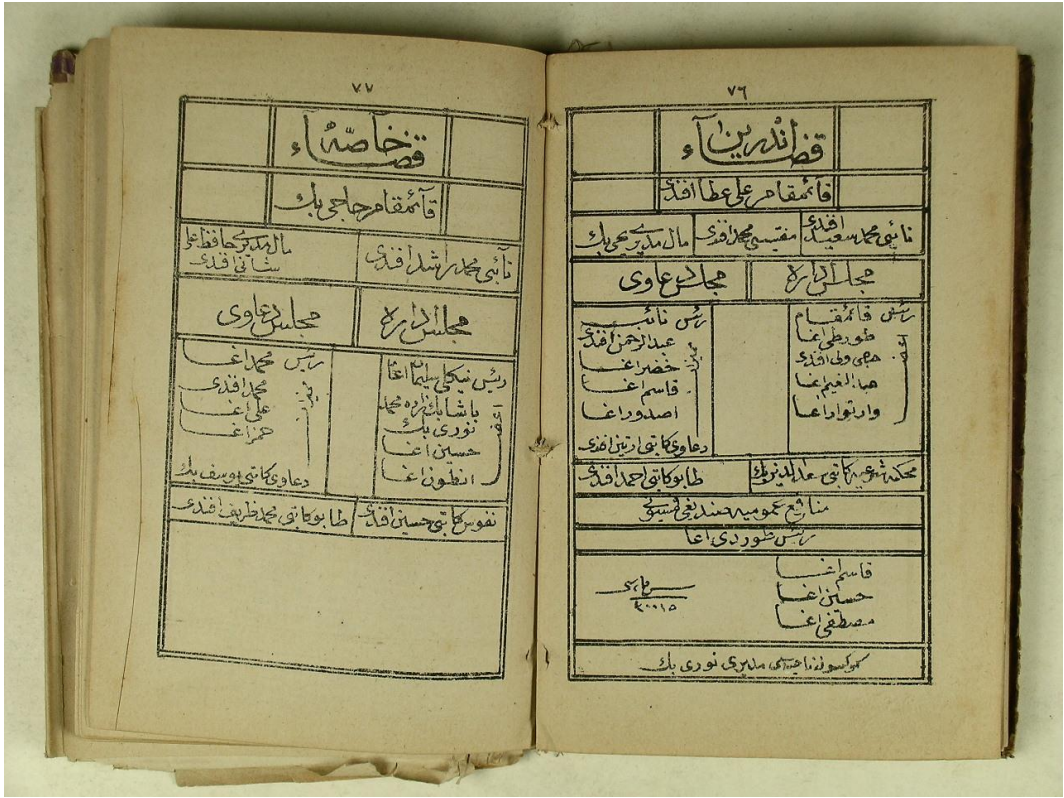 ٧٦
قضاء اندرين
قائمقام على عطا افندى
نائبى محمد سعيد افندى
مفتيسى محمد افندى
مال مديرى يحيى بك
مجلس اداره
مجلس دعاوى
رئيس قائمقام
طورطى اغا
حجى ولى افندى
اغا
وارتوار اغا
اعضا
رئيس نائب
عبدالرحمن افندى
خضر اغا
قاسم اغا
اصدور اغا
مميزان
دعاوى كاتبى ارتين افندى
محكمه شرعيه كاتبى سعدالدين بك
طابو كاتبى احمد افندى
منافع عموميه صندیغى قمسيونى
رئيس طوردى اغا
قاسم اغا
حسين اغا
مصطفى اغا
سرمايه سى
٣٠٠١٥
كوكسون ناحيه سى مديرى نورى بك
٧٧
قضاء خاصه
قائمقام حاجى بك
نائبى محمد راشد افندى
مال مديرى حافظ على
افندى
مجلس اداره
مجلس دعاوى
رئيس سليمان اغا
پاشا بك زاده محمد
نورى بك
حسين اغا
انطون اغا
اعضا
رئيس محمد اغا
محمد افندى
على اغا
عمر اغا
مميزان
دعاوى كاتبى يوسف بك
نفوس كاتبى حسين افندى
طابو كاتبى محمد ظريف افندى